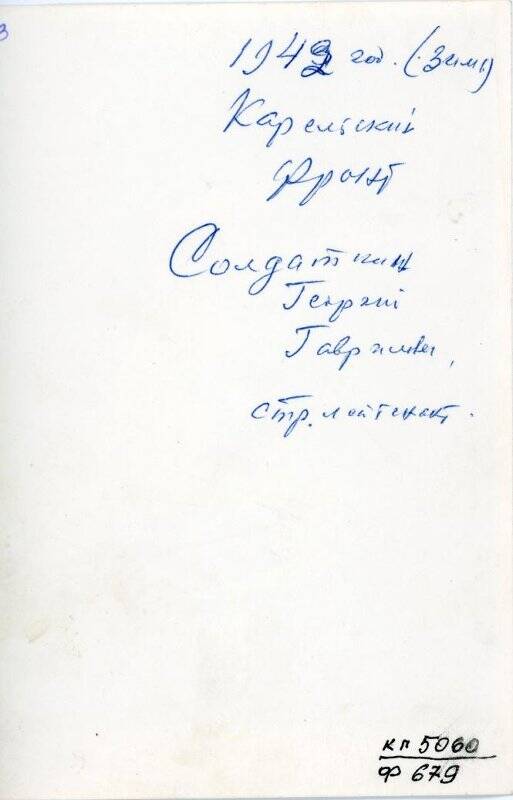 1943 год. (Зима)
Карельский
фронт
Солдаткин
Георгий
Гаврилович,
стр. лейтенант.
кп 5060
ф 679